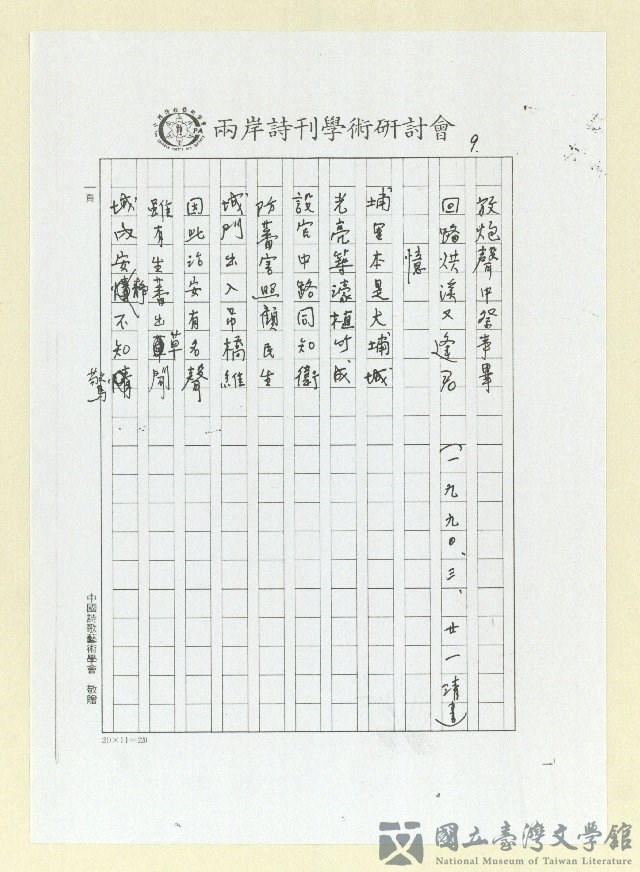 兩岸詩刊學術研討會
9.
放炮聲中祭事畢
回路烘溪又逢君
(一九九0、三、廿一靖書)
憶
埔里本是大埔城
光亮築濠植竹成
設官中路同知衙
防蕃害照顧民生
城門出入吊橋維
因此治安有名聲
雖有生蕃出草聞
城內安靜不知驚
一頁
中國詩歌藝術學會 敬贈
20×11=220
國立臺灣文學館
National Museum of Taiwan Literature